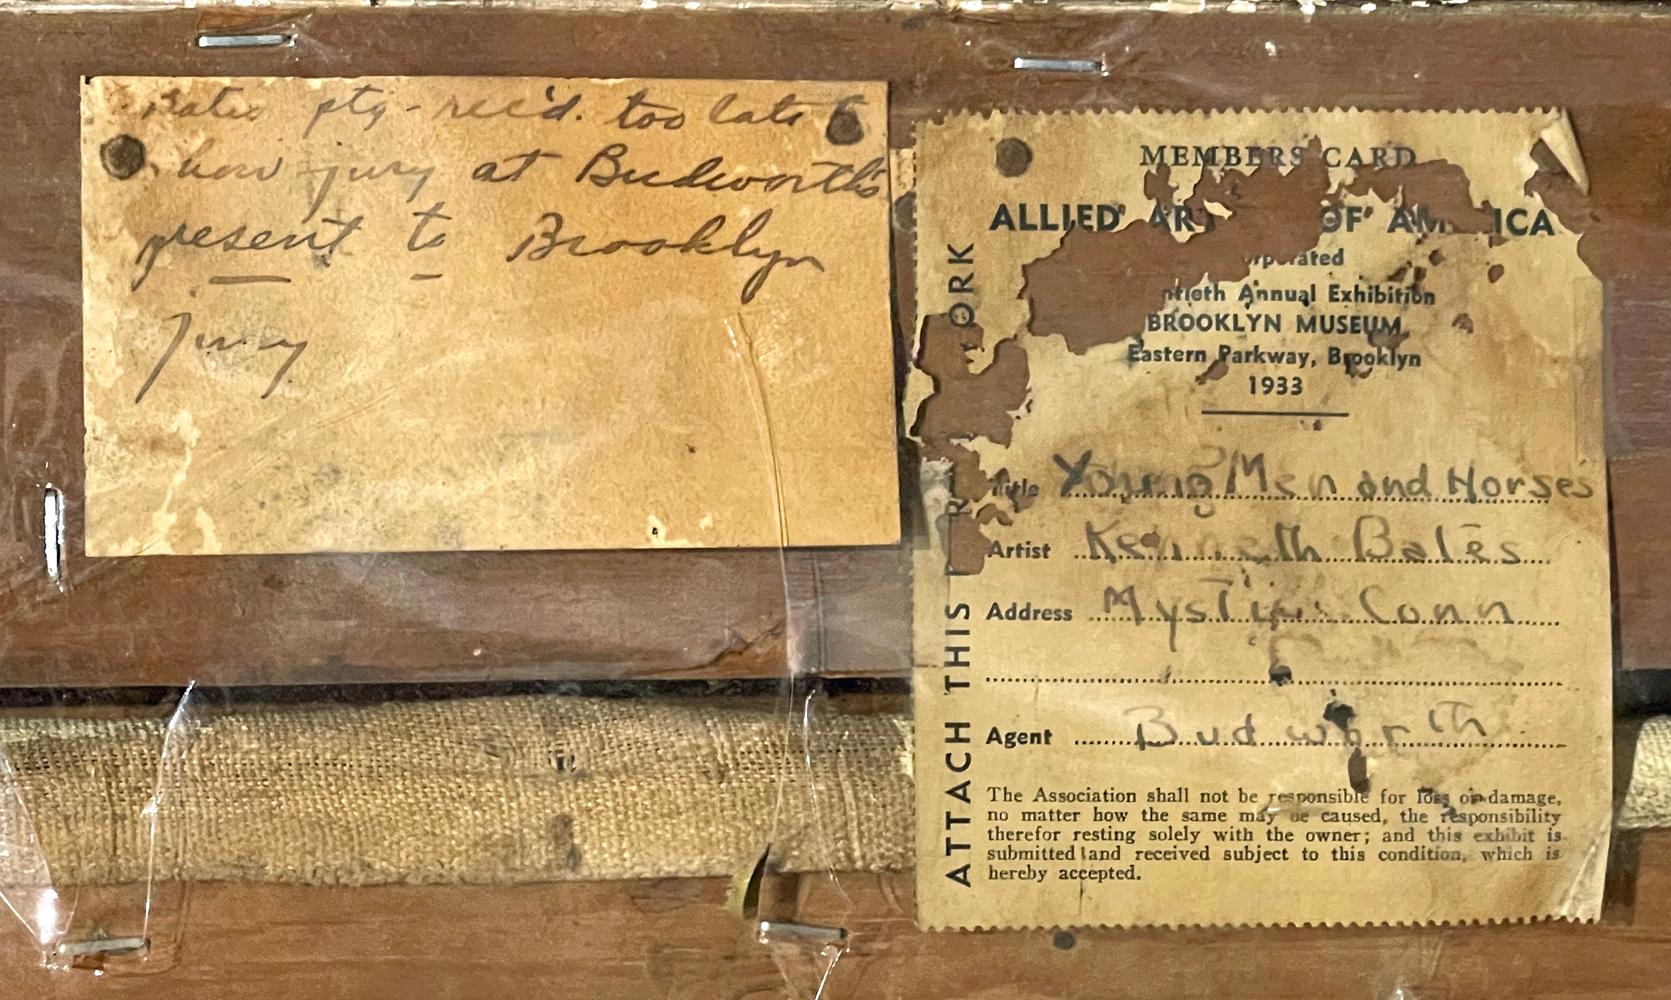 Bates ptg - rec'd. too late to
show jury at Budworth's
present to Brooklyn
jury
MEMBERS CARD
ALLIED OF
Annual Exhibition
BROOKLYN MUSEUM
Eastern Parkway, Brooklyn
1933
Title Young Men and Horses
Artist Kenneth Bates
Address Mystic Conn
Agent Budworth
The Association shall not be responsible for loss or damage,
no matter how the same may be caused, the responsibility
therefor resting solely with the owner; and this exhibit is
submitted and received subject to this condition, which is
hereby accepted.
ATTACH THIS WORK